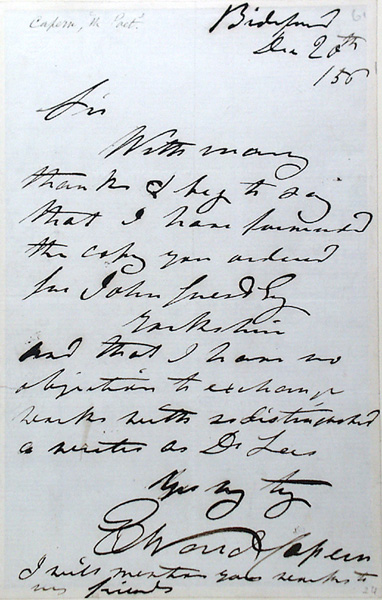 Capern, the Poet.
Bideford
Dec 20th
/56
Sir
With many
thanks I beg to say
that I have forwarded
the copy you ordered
for John Esq
Yorkshire
and that I have no
objection to exchange
works with so distinguished
a writer as Dr Lees
Yrs my try
Edward Capern
I will mention your works to
my friends